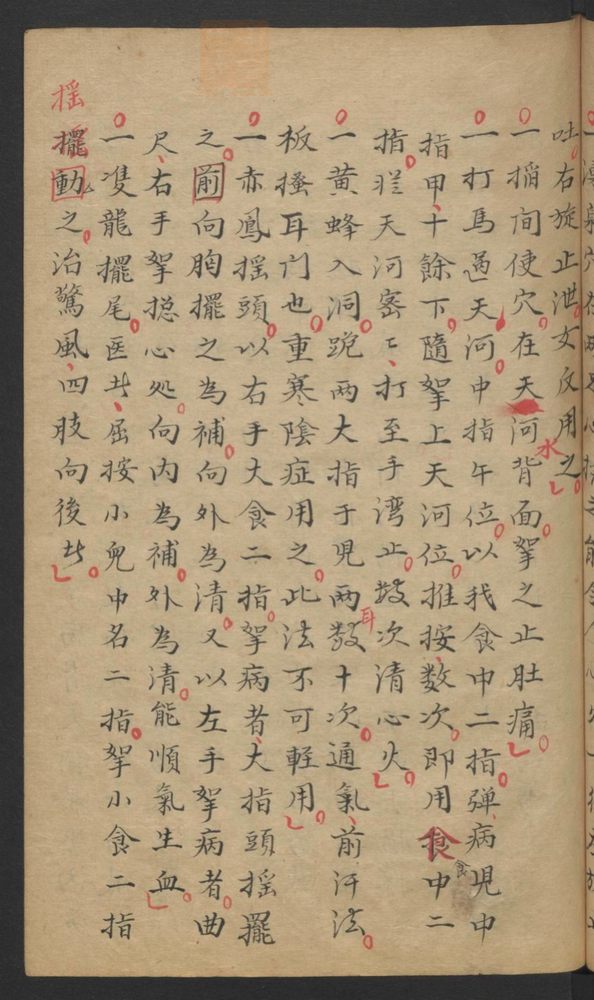 吐右旋止泄女反用之
一搯間使穴在天河水背面拏之止肚痛
一打馬過天河中指午位以我食中二指彈病児中
指甲十餘下隨拏上天河位推按数次即用食中二
指從天河密〻打至手湾止数次清心火
一黄蜂入洞跪两大指于児两耳数十次通氣前汗法
板搔耳门也重寒陰症用之此法不可軽用
一赤鳳揺頭以右手大食二指拏病者大指頭揺擺
之前向胸擺之為補向外為清又以左手拏病者曲
尺右手拏捴心処向内為補外為清能順氣生血
一双龍擺尾医者屈按小兒中名二指拏小食二指
揺動之治驚風四肢向後者